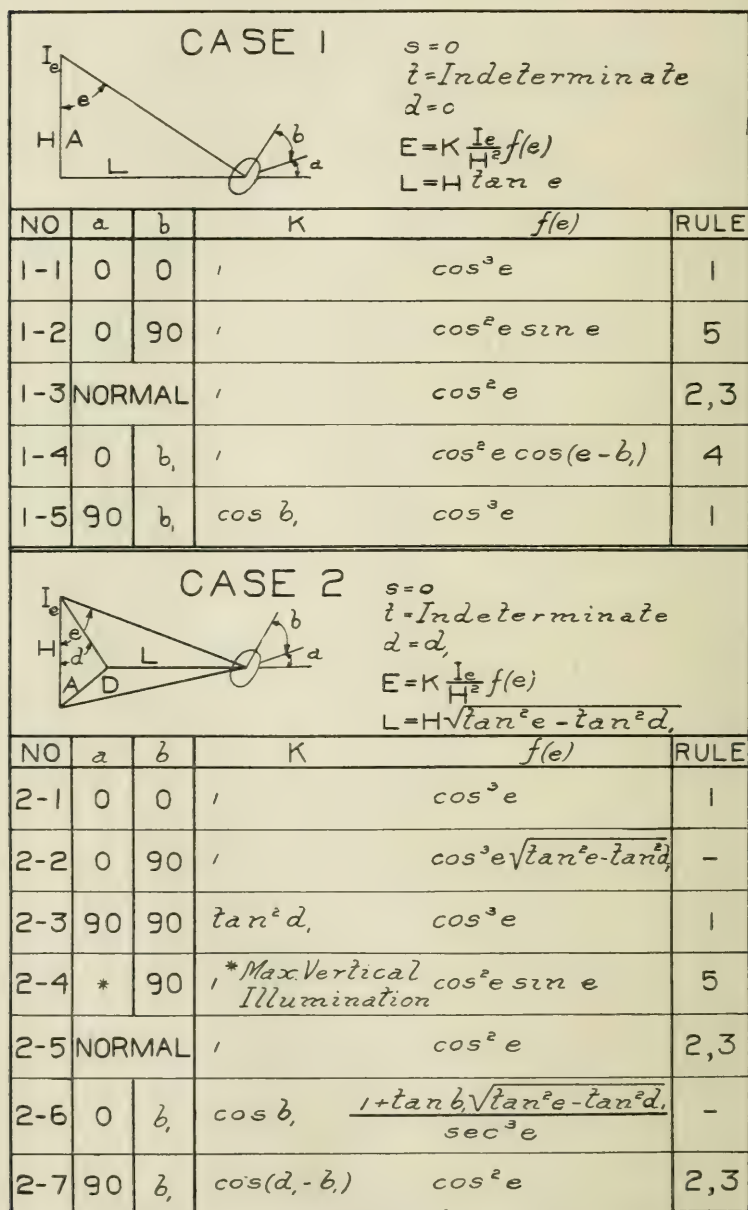 CASE 1
I_e
e
H A
L
b
a
s = 0
t = Indeterminate
d = 0
E = K I_e/H² f(e)
L = H tan e
NO a b K f(e) RULE
1-1 0 0 1 cos³ e 1
1-2 0 90 1 cos² e sin e 5
1-3 NORMAL 1 cos² e 2,3
1-4 0 b₁ 1 cos² e cos(e - b₁) 4
1-5 90 b₁ cos b₁ cos³ e 1
CASE 2
I_e
e
H d
L
A D
b
a
s = 0
t = Indeterminate
d = d₁
E = K I_e/H² f(e)
L = H√tan² e - tan² d₁
NO a b K f(e) RULE
2-1 0 0 1 cos³ e 1
2-2 0 90 1 cos³ e √tan² e - tan² d₁ -
2-3 90 90 tan² d₁ cos³ e 1
2-4 * 90 1 *Max. Vertical Illumination cos² e sin e 5
2-5 NORMAL 1 cos² e 2,3
2-6 0 b₁ cos b₁ 1 + tan b₁ √tan² e - tan² d₁ / sec³ e -
2-7 90 b₁ cos(d₁ - b₁) cos² e 2,3